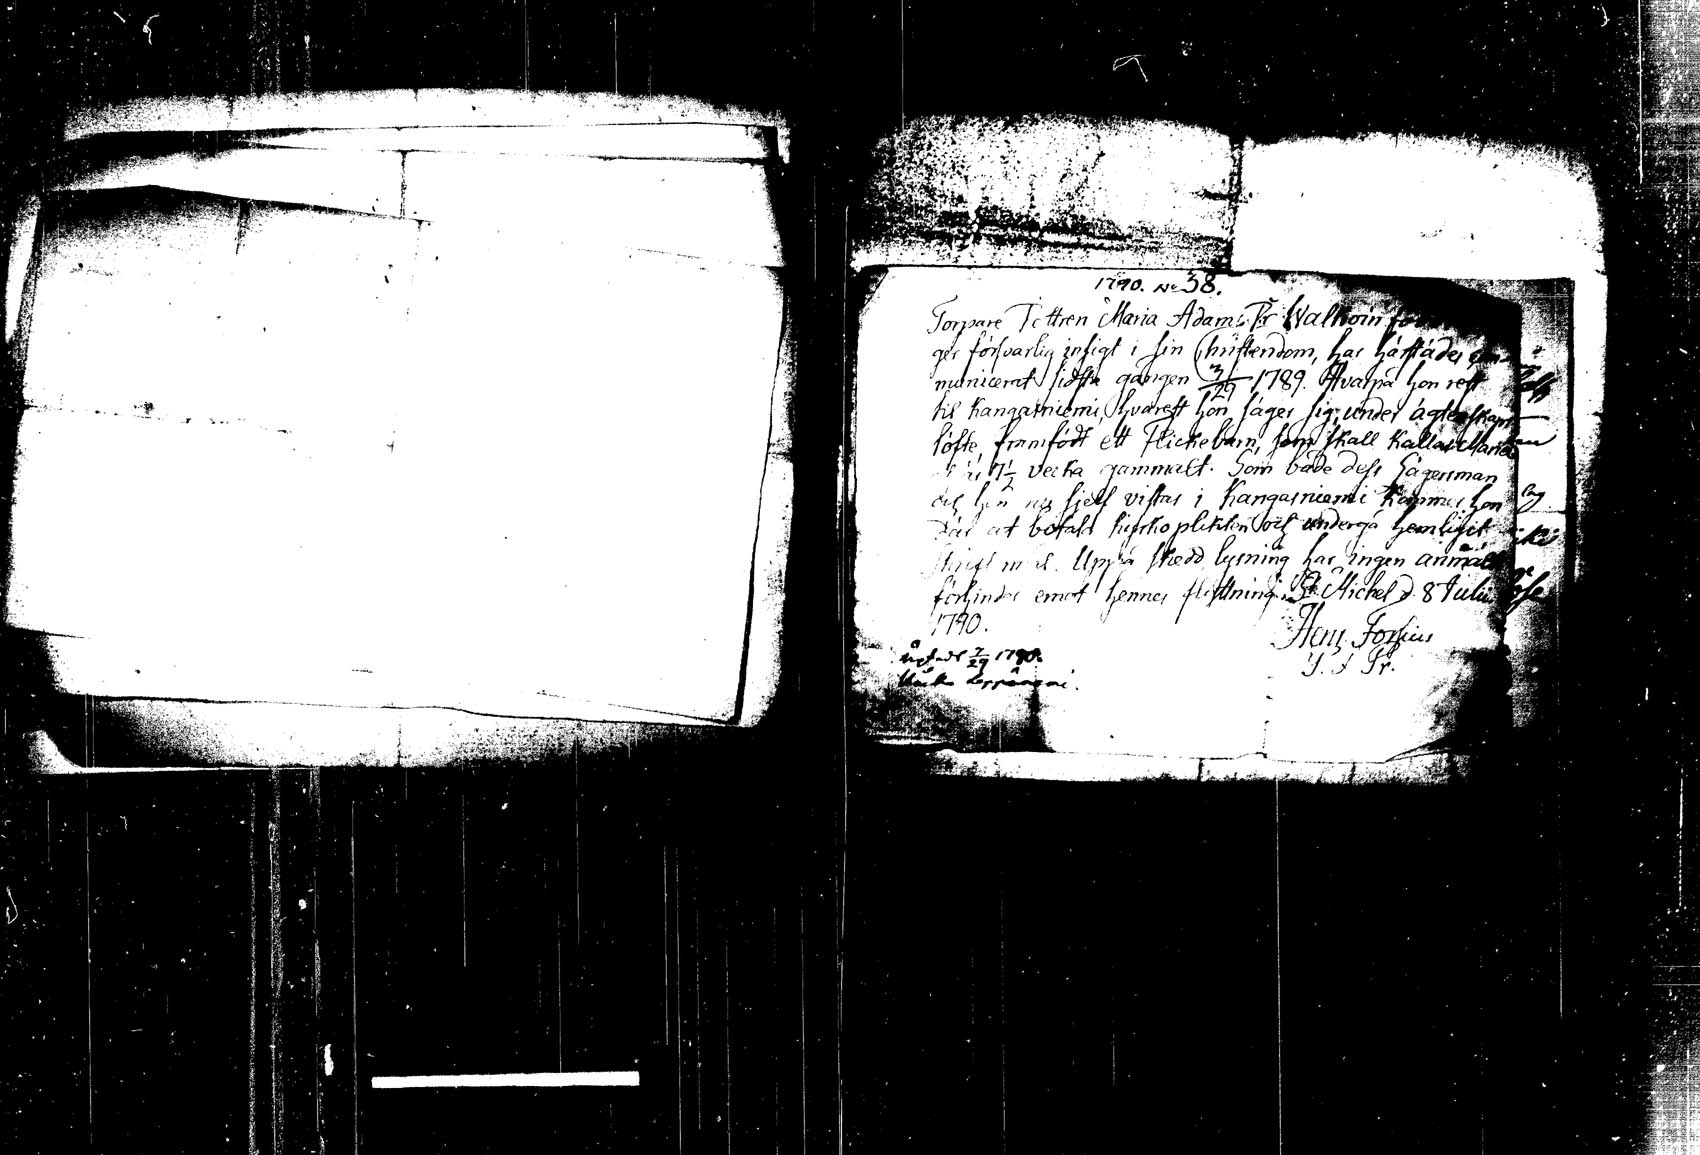 1790. No 38.
Torpare Dottren Maria Adams Dr Walkoin
ger försvarlig insigt i sin Christendom, har härstädes
municerat sidsta gången 3/29 1789. Hvarpå hon rest
til Kangasniemi, hvarest hon säger sig, under ägtenskaps
löfte, framfödt ett Flickebarn, som skall kallas Maria
7 1/2 vecka gammalt. Som både dess Lägersman
och hon nu sjelf vistas i Kangasniemi kommer hon
där at betala kyrkoplikten och undergå hemligit
skriftmål. Uppå skedd lysning har ingen anmält
förhinder emot hennes flyttning. St Michel d. 8 Julii
1790.
Henr. Forsius
7/29 1790.